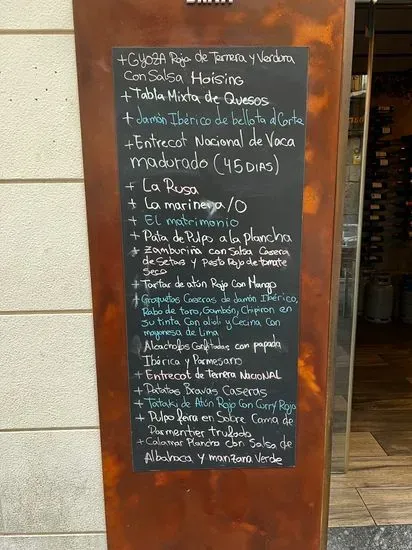 + GYOZA Roja de Ternera y Verdura
con Salsa Hoising
+ Tabla Mixta de Quesos
+ Jamón Ibérico de bellota al Corte
+ Entrecot Nacional de Vaca
madurado (45 DIAS)
+ La Rusa
+ La marinera/o
+ El matrimonio
+ Pata de Pulpo a la plancha
+ Zamburiña con Salsa Casera
de Setas y Pesto Rojo de tomate
seco
+ Tartar de atún Rojo con Mango
+ Croquetas Caseras de Jamón Ibérico,
Rabo de toro, Gambón, Chipiron en
su tinta con alioli y Cecina con
mayonesa de lima
Alcachofas Confitadas con papada
Ibérica y Parmesano
+ Entrecot de Ternera NACIONAL
+ Patatas Bravas Caseras
+ Tataki de Atún Rojo con Curry Rojo
+ Pulpo feira en Sobre Cama de
Parmentier trufado
+ Calamar Plancha con Salsa de
Albahaca y manzana Verde